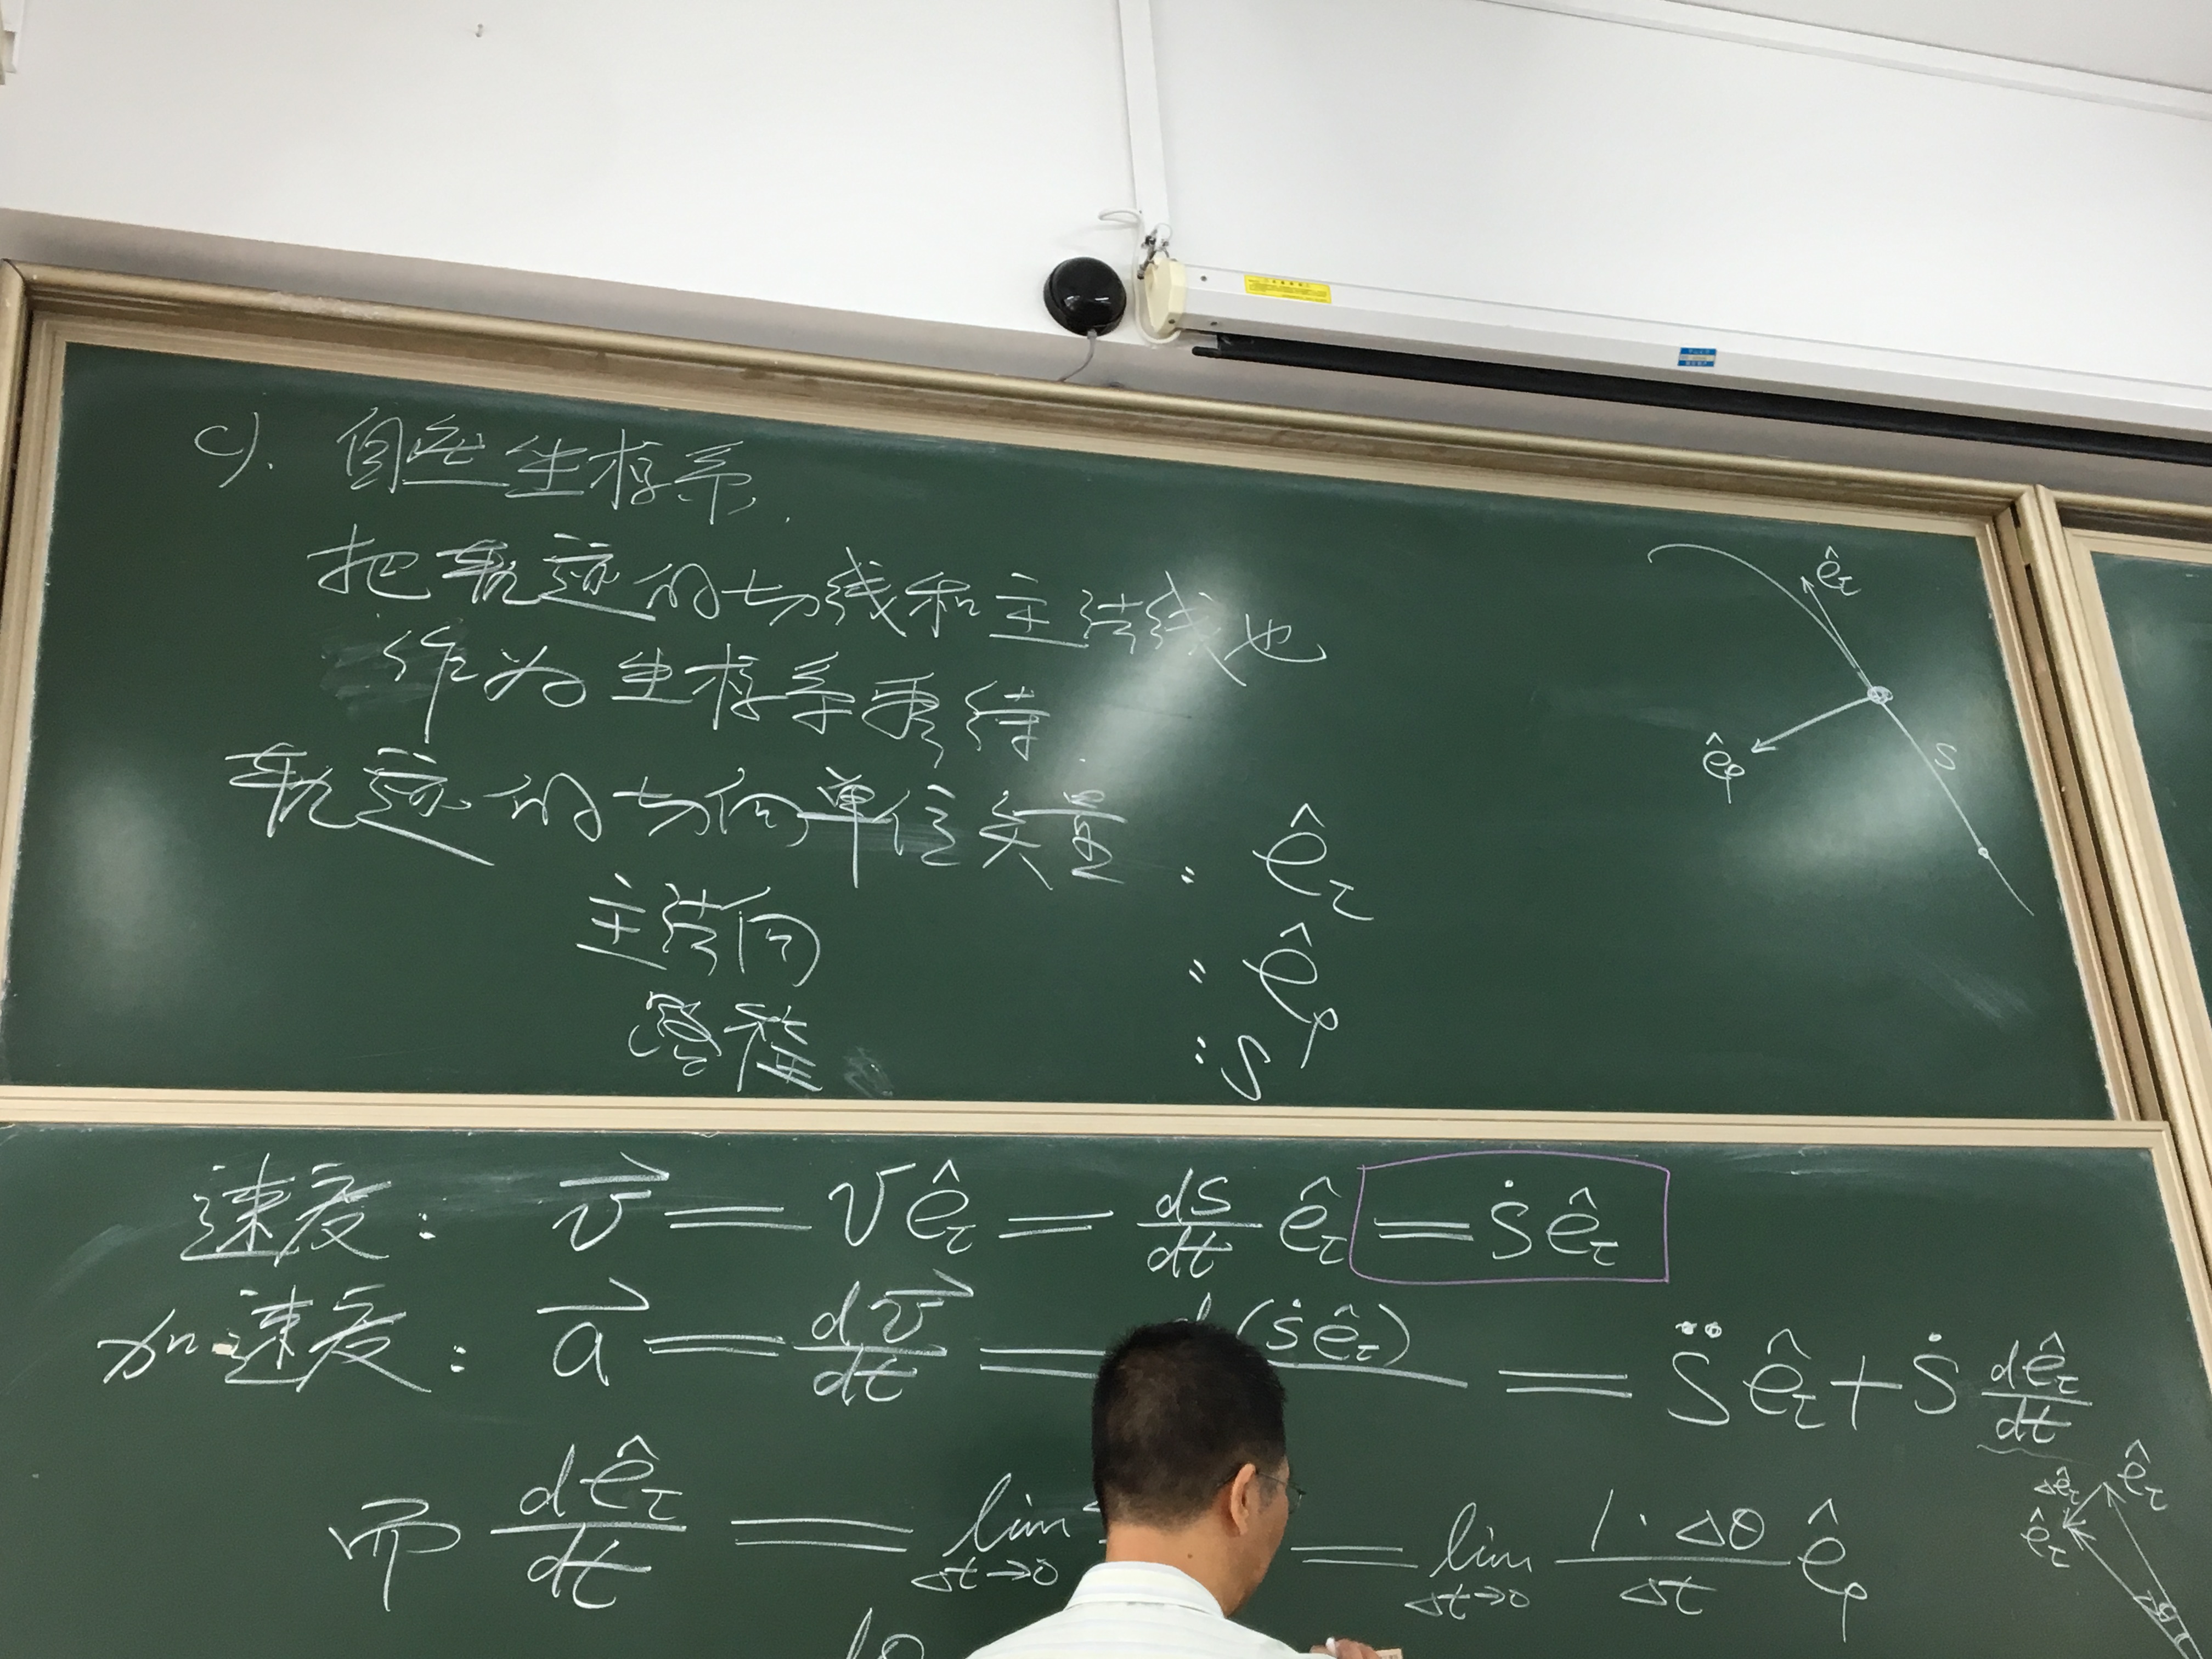 c). 自然坐标系.
把轨迹的切线和主法线也
作为坐标系看待.
轨迹的切向单位矢量: ê_τ
主法向 : ê_ρ
路程 : s
ê_τ
ê_ρ
s
速度: v⃗ = v ê_τ = ds/dt ê_τ = ṡ ê_τ
加速度: a⃗ = dv⃗/dt = d(ṡ ê_τ) = s̈ ê_τ + ṡ dê_τ/dt
而 dê_τ/dt = lim Δt→0 = lim Δt→0 1·Δθ/Δt ê_ρ
Δê_τ ê_τ
ê_τ
Δθ